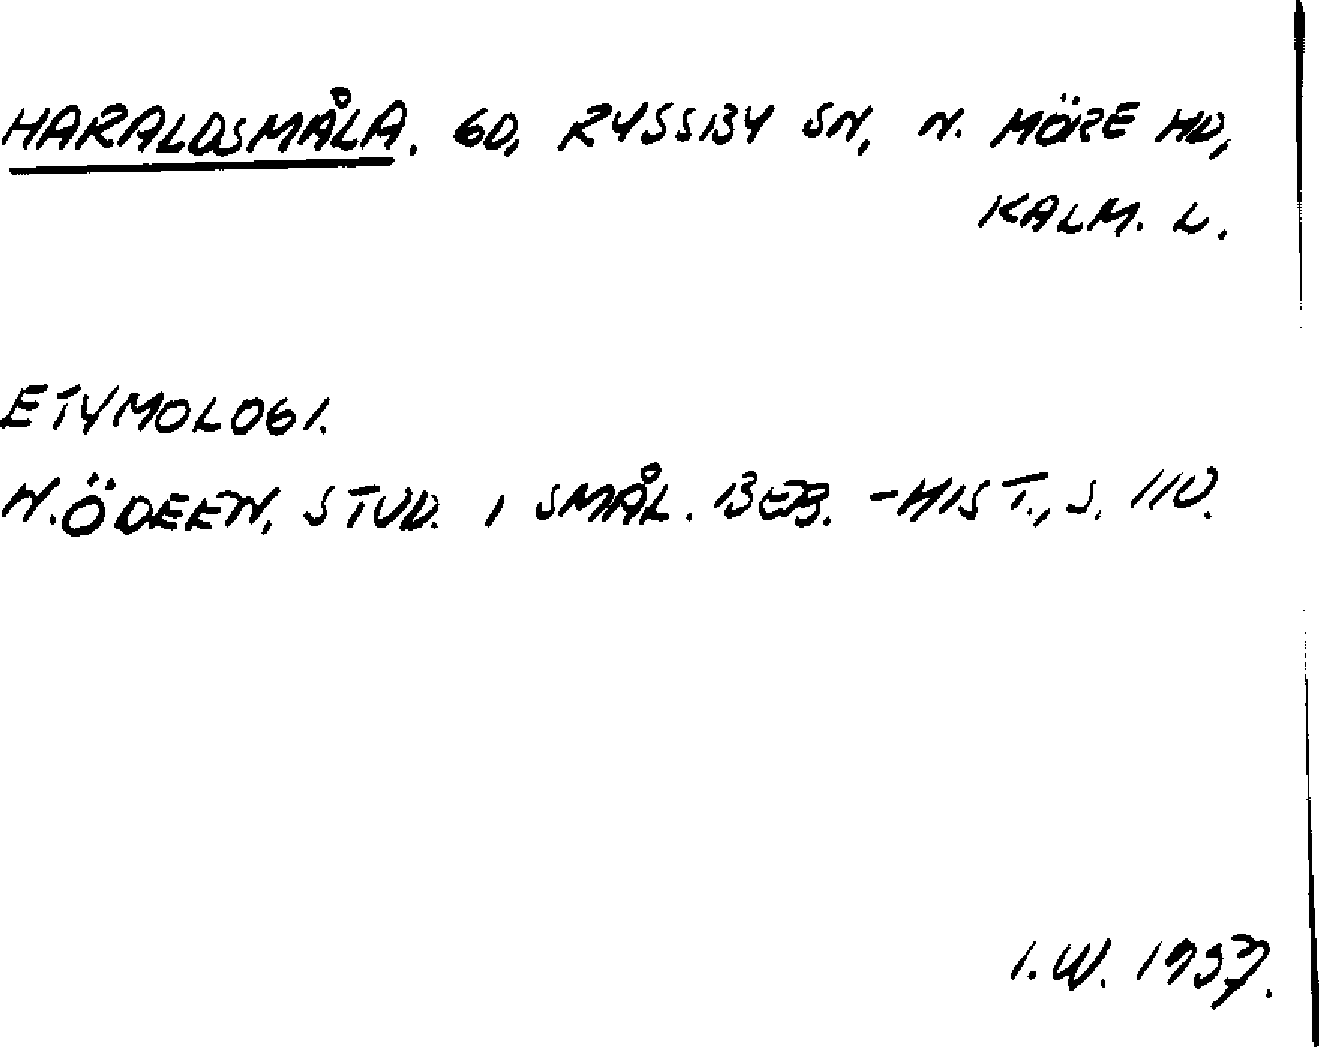 HARALDSMÅLA. GD, RYSSBY SN, N. MÖRE HD,
KALM. L.
ETYMOLOGI.
N. ÖDEEN, STUD. I SMÅL. BEB. -HIST., S. 110.
I.W. 1937.